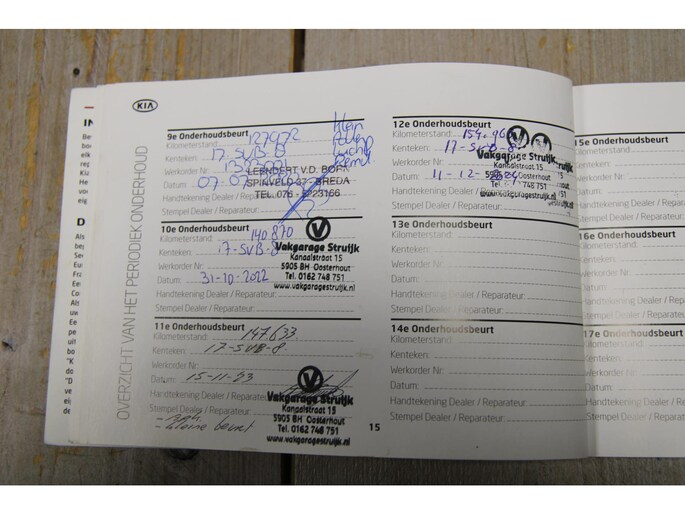 KIA
OVERZICHT VAN HET PERIODIEK ONDERHOUD
9e Onderhoudsbeurt
Kilometerstand: 127972
Kenteken: 17-SVB-8
Werkorder Nr
Datum: 07-07
LEENDERT V.D. BORN
SPINVELD 37 - BREDA
TEL. 076 - 5223166
Handtekening Dealer / Reparateur:
Stempel Dealer / Reparateur:
Klein
10e Onderhoudsbeurt
Kilometerstand: 140870
Kenteken: 17-SVB-8
Werkorder Nr
Datum: 31-10-2022
Handtekening Dealer / Reparateur:
Stempel Dealer / Reparateur:
Vakgarage Struijk
Kanaalstraat 15
5905 BH Oosterhout
Tel. 0162 748 751
www.vakgaragestruijk.nl
11e Onderhoudsbeurt
Kilometerstand: 147.633
Kenteken: 17-SVB-8
Werkorder Nr:
Datum: 15-11-23
Handtekening Dealer / Reparateur
Stempel Dealer / Reparateur:
kleine beurt
Vakgarage Struijk
Kanaalstraat 15
5905 BH Oosterhout
Tel. 0162 748 751
www.vakgaragestruijk.nl
15
12e Onderhoudsbeurt
Kilometerstand:
Kenteken: 17-SVB-8
Werkorder Nr:
Datum: 11-12-2024
Handtekening Dealer / Reparateur:
Stempel Dealer / Reparateur:
Vakgarage Struijk
Kanaalstraat 15
Oosterhout
Tel. 0162 748 751
www.vakgaragestruijk.nl
13e Onderhoudsbeurt
Kilometerstand:
Kenteken:
Werkorder Nr:
Datum:
Handtekening Dealer / Reparateur:
Stempel Dealer / Reparateur:
14e Onderhoudsbeurt
Kilometerstand:
Kenteken:
Werkorder Nr:
Datum:
Handtekening Dealer / Reparateur:
Stempel Dealer / Reparateur:
15e Onderhoudsbeurt
Kilometerstand:
Kenteken:
Werkorder Nr:
Datum:
Handtekening Dealer / Re
Stempel Dealer / Repara
16e Onderhoudsbeurt
Kilometerstand:
Kenteken:
Werkorder Nr:
Datum:
Handtekening Dealer /
Stempel Dealer / Repar
17e Onderhoudsbeurt
Kilometerstand:
Kenteken:
Werkorder Nr:
Datum:
Handtekening Dealer
Stempel Dealer / Rep